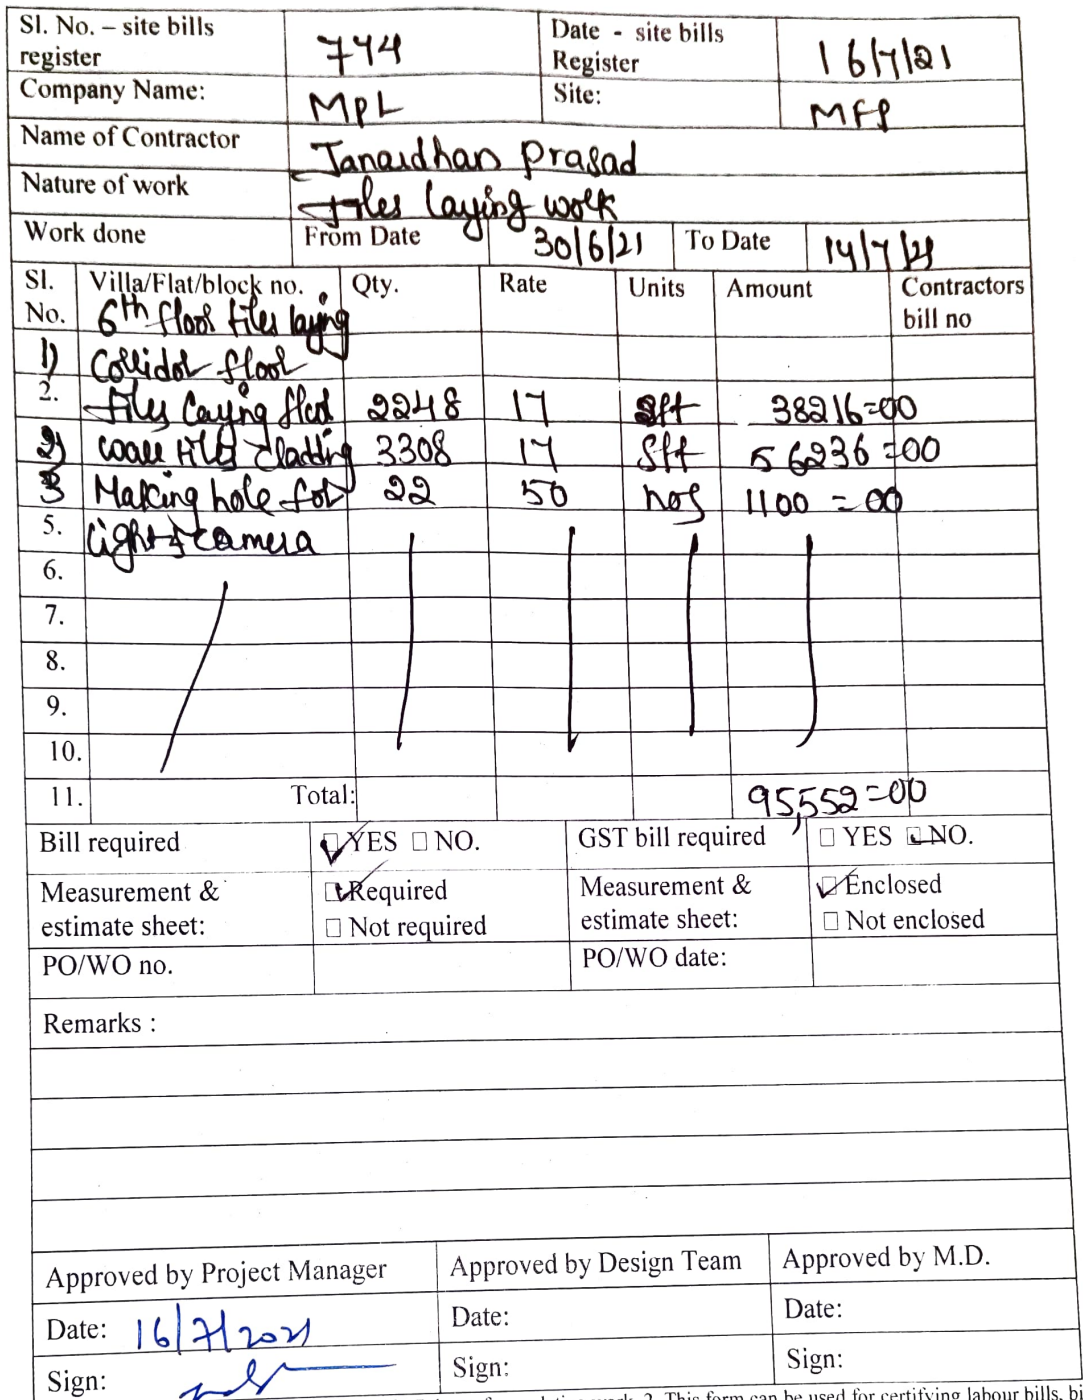 Sl. No. – site bills register 774 Date - site bills Register 16/7/21
Company Name: MPL Site: MFP
Name of Contractor Janardhan prasad
Nature of work Tiles laying work
Work done From Date 30/6/21 To Date 14/7/21
Sl. No. Villa/Flat/block no. Qty. Rate Units Amount Contractors bill no
6th floor tiles laying
1) Corridor floor
2. tiles laying floor 2248 17 Sft 38216=00
2) wall tiles cladding 3308 17 Sft 56236=00
3 Making hole for 22 50 nos 1100=00
5. light & camera
6.
7.
8.
9.
10.
11. Total: 95,552=00
Bill required YES NO. GST bill required YES NO.
Measurement & estimate sheet: Required Not required Measurement & estimate sheet: Enclosed Not enclosed
PO/WO no. PO/WO date:
Remarks :
Approved by Project Manager Approved by Design Team Approved by M.D.
Date: 16/7/2021 Date: Date:
Sign: Sign: Sign:
2. This form can be used for certifying labour bills,